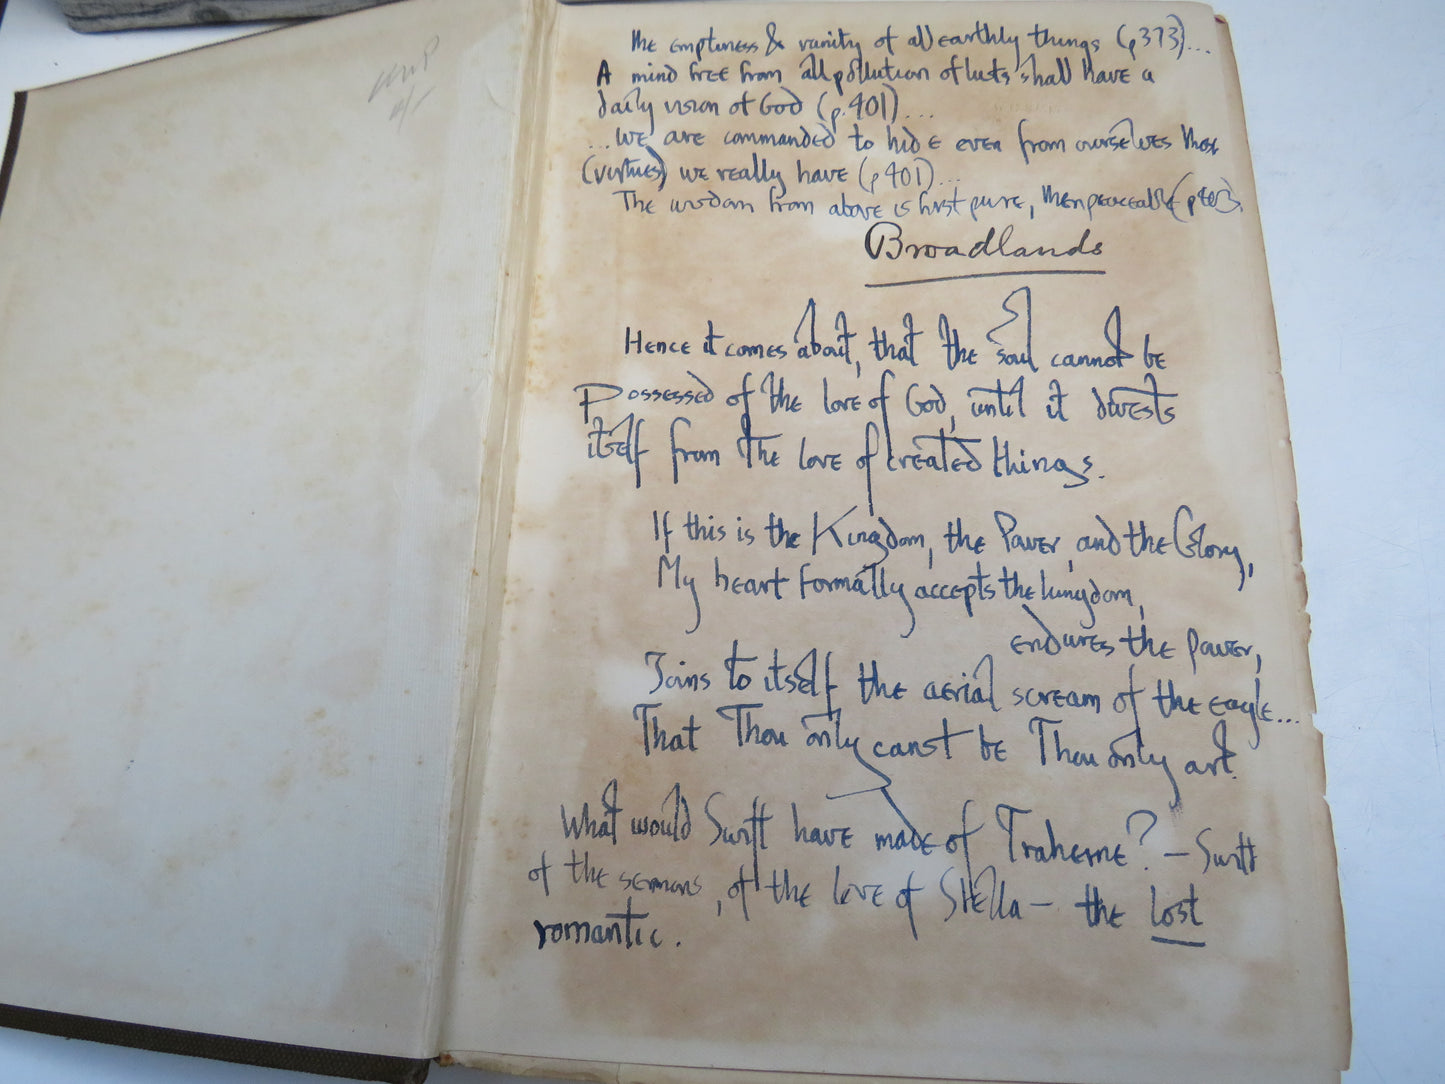 The emptiness & vanity of all earthly things (p373)...
A mind free from all pollution of lusts shall have a
daily vision of God (p.401)...
...we are commanded to hide even from ourselves those
(virtues) we really have (p401)...
The wisdom from above is first pure, then peaceable (p403).
Broadlands
Hence it comes about, that the soul cannot be
Possessed of the love of God, until it divests
itself from the love of created things.
If this is the Kingdom, the Power, and the Glory,
My heart formally accepts the kingdom,
endures the power,
Joins to itself the aerial scream of the eagle...
That Thou only canst be Thou only art.
What would Swift have made of Traherne? — Swift
of the sermons, of the love of Stella — the lost
romantic.